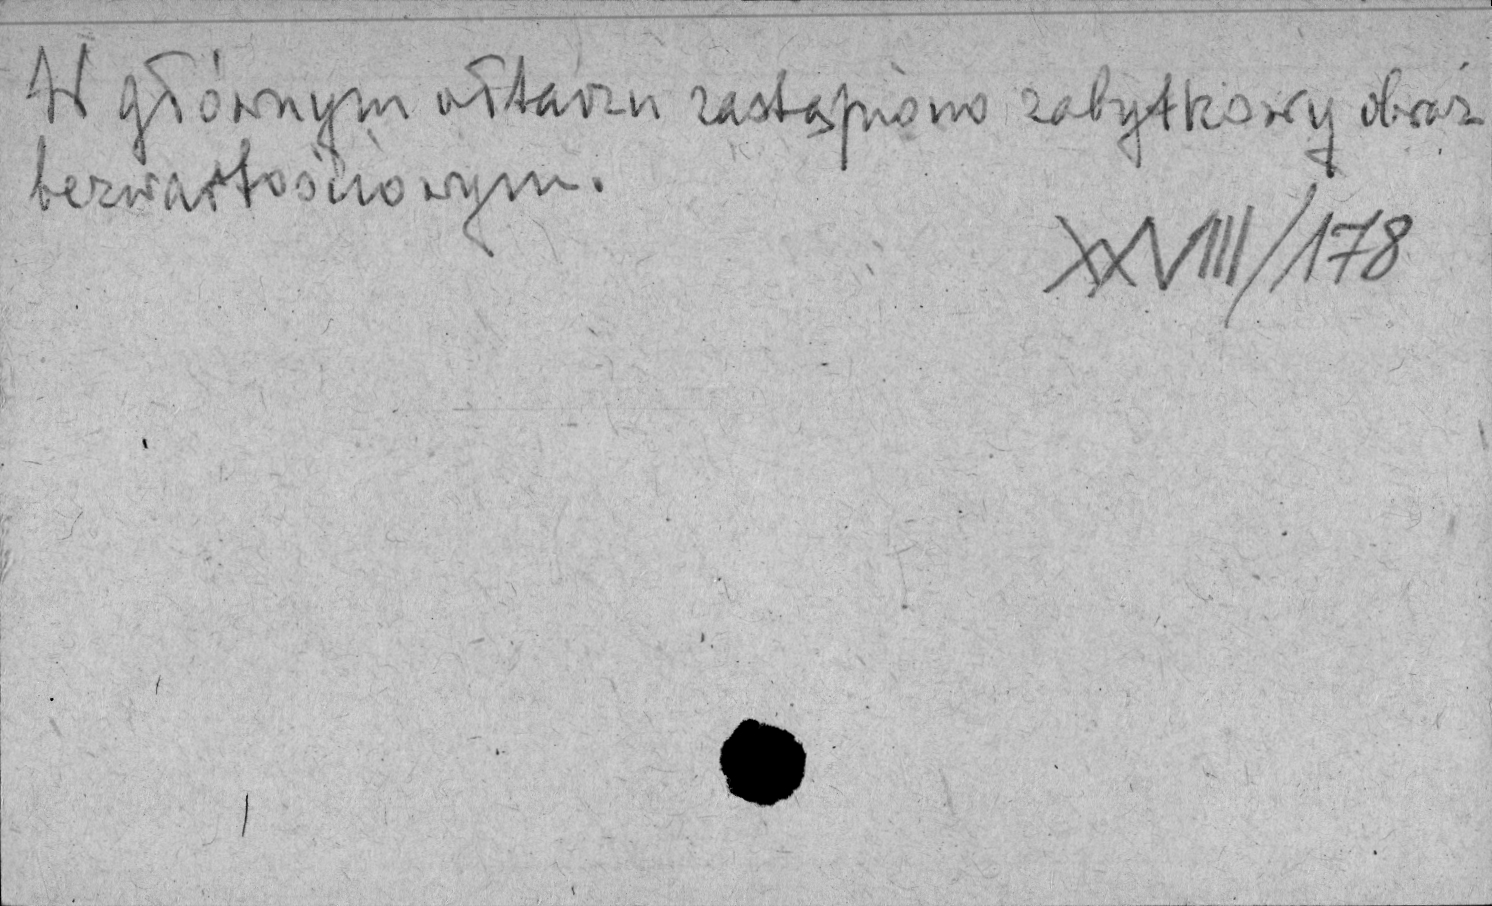 W głównym ołtarzu zastąpiono zabytkowy obraz
bezwartościowym.
XXVIII/178